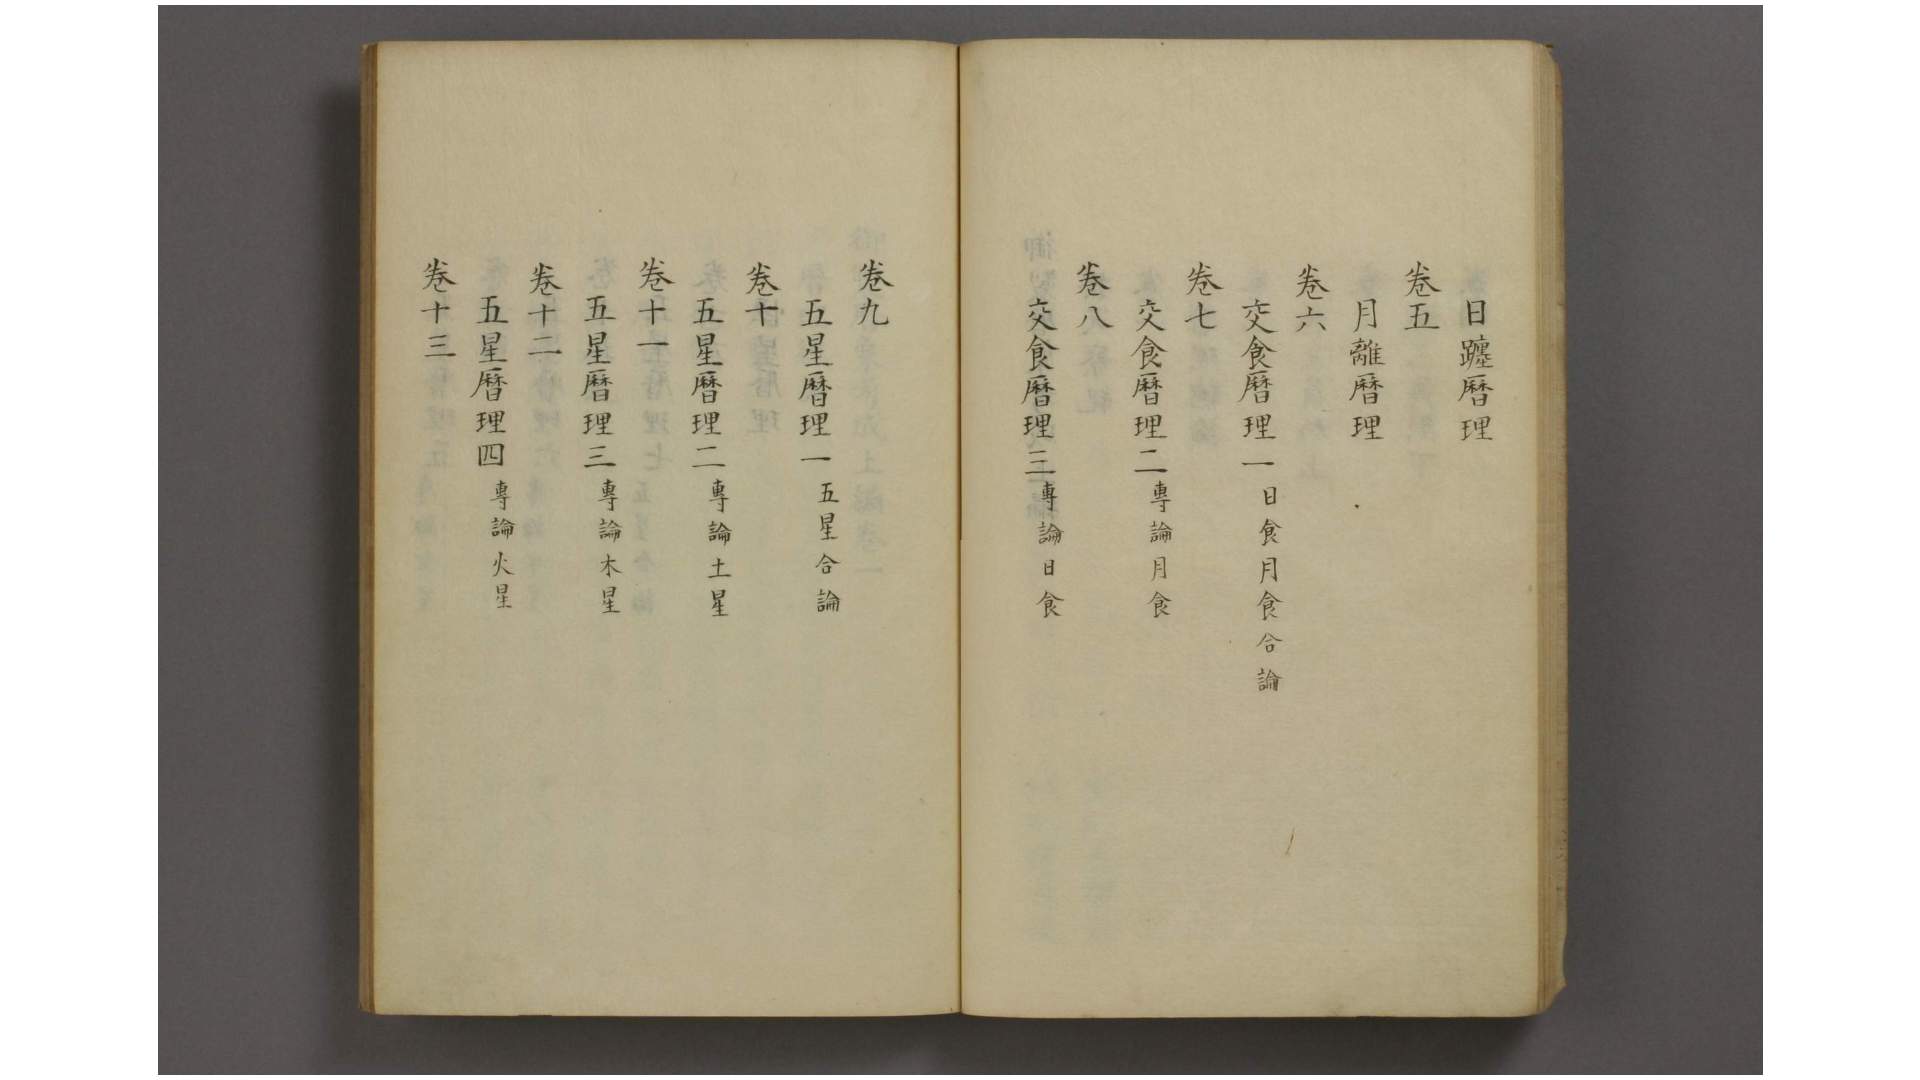 日躔暦理
卷五
月離暦理
卷六
交食暦理一 日食月食合論
卷七
交食暦理二 專論月食
卷八
交食暦理三 專論日食
卷九
五星暦理一 五星合論
卷十
五星暦理二 專論土星
卷十一
五星暦理三 專論木星
卷十二
五星暦理四 專論火星
卷十三